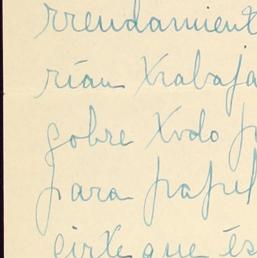 rrendamient
rían trabaja
sobre todo p
para papel
eirte que és